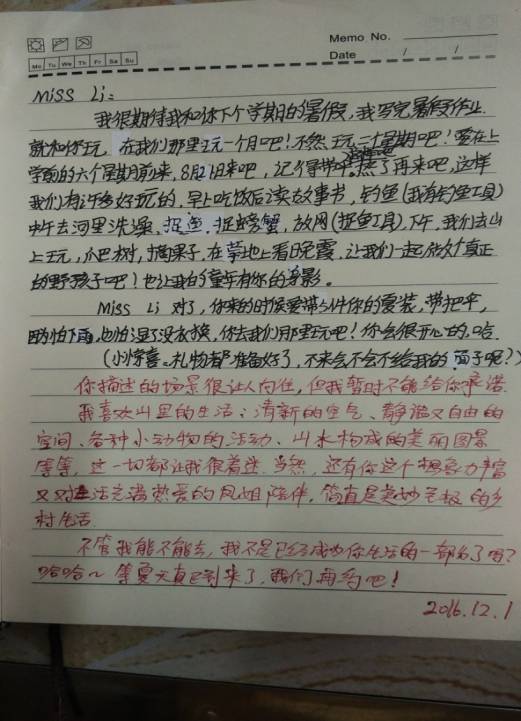 Memo No.
Mo Tu We Th Fr Sa Su
Date / /
Miss Li：
我很期待我和你下个学期的暑假，我写完暑假作业
就和你玩，在我们那里玩一个月吧！不然玩二个星期吧！要在上
学前的六个星期前来，8月2日来吧，记得带 了再来吧，这样
我们有许多好玩的，早上吃饭后读故事书，钓鱼（我有钓鱼工具）
中午去河里洗澡，捉鱼，捉螃蟹，放网（捉鱼工具）下午，我们去山
上玩，爬树，摘果子，在草地上看晚霞，让我们一起做个真正
的野孩子吧！也让我的童年有你的身影。
Miss Li 对了，你来的时候要带5件你的夏装，带把伞，
因为怕下雨，也怕湿了没衣换，你去我们那里玩吧！你会很开心的，哈
（小惊喜。礼物都准备好了，不来会不会不给我的面子呢？）
你描述的场景很让人向往，但我暂时不能给你承诺
我喜欢山里的生活：清新的空气、静谧又自由的
空间、各种小动物的活动、山水构成的美丽图景
等等，这一切都让我很着迷。当然，还有你这个想象力丰富
又对生活充满热爱的 姐陪伴，简直是美妙至极的乡
村生活
不管我能不能去，我不是已经成为你生活的一部分了吗？
哈哈～ 等夏天真正到来了，我们再约吧！
2016.12.1